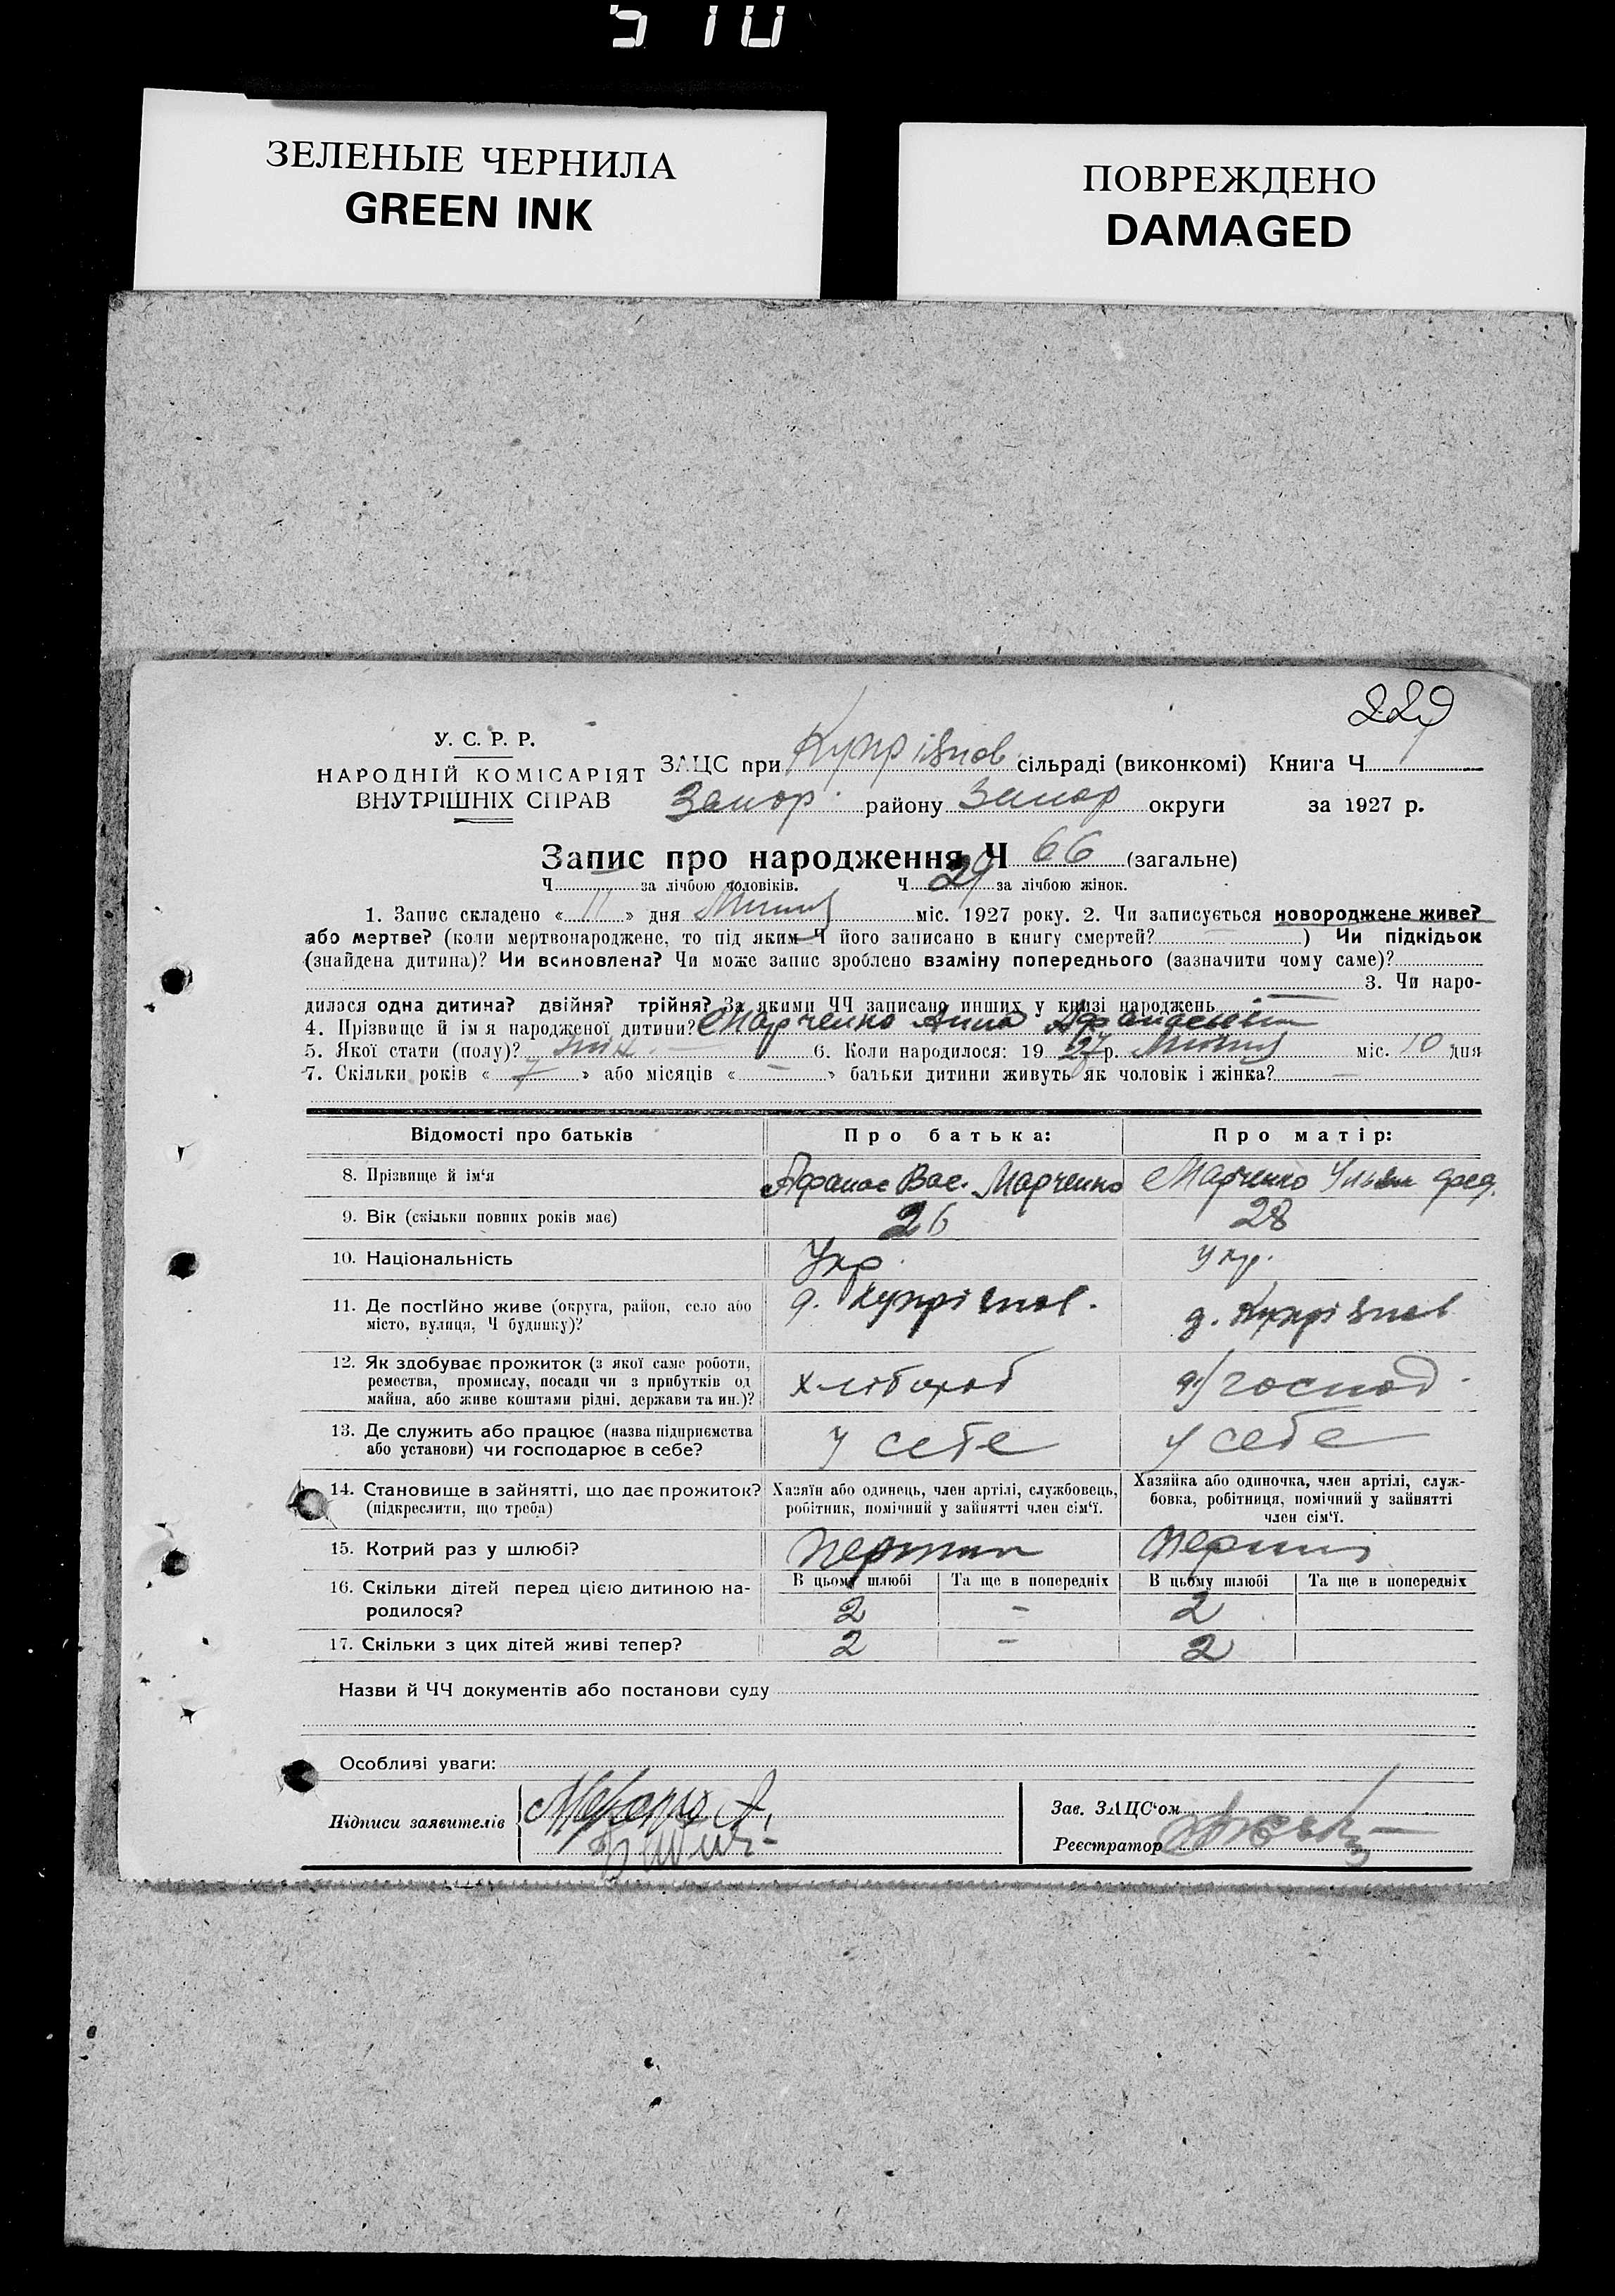 510
ЗЕЛЕНЫЕ ЧЕРНИЛА
GREEN INK
ПОВРЕЖДЕНО
DAMAGED
229
У. С. Р. Р.
НАРОДНІЙ КОМІСАРІЯТ
ВНУТРІШНІХ СПРАВ
ЗАЦС при Купріянов сільраді (виконкомі) Книга Ч
Запор. району Запор округи за 1927 р.
Запис про народження Ч 66 (загальне)
Ч за лічбою чоловіків. Ч 29 за лічбою жінок.
1. Запис складено « 11 » дня міс. 1927 року. 2. Чи записується новороджене живе?
або мертве? (коли мертвонароджене, то під яким Ч його записано в книгу смертей? — ) Чи підкідьок
(знайдена дитина)? Чи всиновлена? Чи може запис зроблено взаміну попереднього (зазначити чому саме)?
3. Чи наро-
дилася одна дитина? двійня? трійня? За якими ЧЧ записано инших у книзі народжень —
4. Прізвище й імя народженої дитини? Марченко Анна
5. Якої стати (полу)? жін. — 6. Коли народилося: 19 27 р. міс. 10 дня
7. Скільки років « » або місяців « — » батьки дитини живуть як чоловік і жінка? —
Відомості про батьків
Про батька:
Про матір:
8. Прізвище й ім‘я
Афанас Вас. Марченко
Марченко Ульян Фед.
9. Вік (скільки повних років має)
26
28
10. Національність
Укр.
Укр.
11. Де постійно живе (округа, район, село або
місто, вулиця, Ч будинку)?
д. Купріянов.
д. Купріянов
12. Як здобуває прожиток (з якої саме роботи,
ремества, промислу, посади чи з прибутків од
майна, або живе коштами рідні, держави та ин.)?
хлібороб
д/господ.
13. Де служить або працює (назва підприємства
або установи) чи господарює в себе?
у себе
у себе
14. Становище в зайнятті, що дає прожиток?
(підкреслити, що треба)
Хазяїн або одинець, член артілі, службовець,
робітник, помічний у зайнятті член сім‘ї.
Хазяйка або одиночка, член артілі, служ-
бовка, робітниця, помічний у зайнятті
член сім‘ї.
15. Котрий раз у шлюбі?
16. Скільки дітей перед цією дитиною на-
родилося?
В цьому шлюбі
Та ще в попередніх
В цьому шлюбі
Та ще в попередніх
2
–
2
17. Скільки з цих дітей живі тепер?
2
–
2
Назви й ЧЧ документів або постанови суду
Особливі уваги:
Підписи заявителів
Зав. ЗАЦС‘ом
Реєстратор